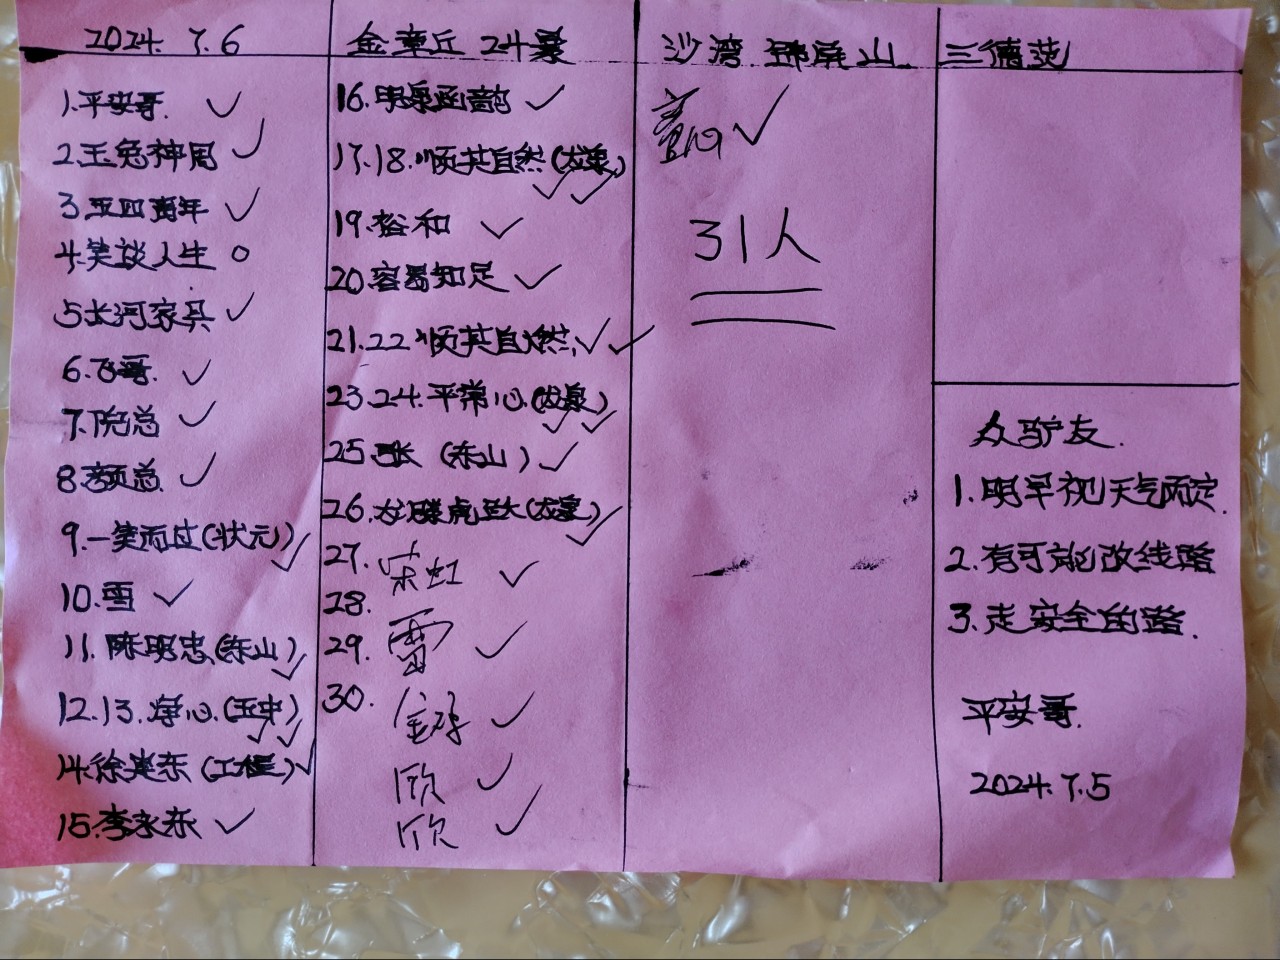 2024.7.6
1.平安哥.
2.玉兔神周
3.五四青年
4.笑谈人生
5.长河家具
6.飞哥.
7.阮总
8.颜总.
9.一笑而过(状元)
10.雪
11.陈明忠(东山)
12.13.净心.(玉中)
14.徐建东(工程)
15.李永东
金章丘 24景
16.明泉函韵
17.18.顺其自然(龙泉)
19.裕和
20.容易知足
21.22顺其自然.
23.24.平常心.(龙泉)
25 张(东山)
26.龙腾虎(龙泉)
27.宋虹
28.
29.雷
30.
欣
欣
沙湾 翠屏山
31人
三德范
众驴友.
1.明早视天气而定.
2.有可能改线路
3.走安全的路.
平安哥.
2024.7.5